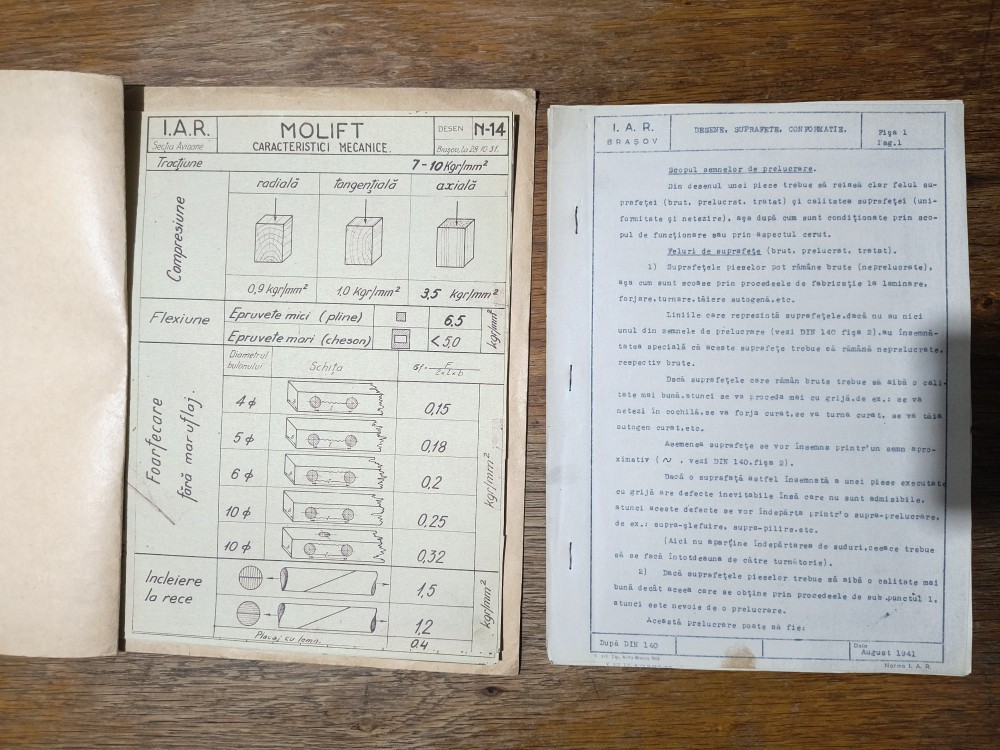 I.A.R.
Secția Avioane
MOLIFT
CARACTERISTICI MECANICE.
DESEN
N-14
Brașov, la 28.10.37.
Tracțiune
7-10 Kgr/mm²
Compresiune
radială
tangențială
axială
0,9 kgr/mm²
1,0 Kgr/mm²
3,5 kgr/mm²
Flexiune
Epruvete mici (pline)
6,5
Epruvete mari (cheson)
<5,0
kgr/mm²
Foarfecare
fără maruflaj.
Diametrul
bulonului
Schița
4 ɸ
0,15
5 ɸ
0,18
6 ɸ
0,2
10 ɸ
0,25
10 ɸ
0,32
kgr/mm²
Incleiere
la rece
1,5
1,2
kgr/mm²
Placaj cu lemn.
0.4
I. A. R.
BRAȘOV
DESENE, SUPRAFETE, CONFORMATIE.
Fișa 1
Pag.1
Scopul semnelor de prelucrare.
Din desenul unei piese trebue să reiasă clar felul su-
prafeței (brut, prelucrat, tratat) și calitatea suprafeței (uni-
formitate și netezire), așa după cum sunt condiționate prin sco-
pul de funcționare sau prin aspectul cerut.
Feluri de suprafețe (brut, prelucrat, tratat).
1) Suprafețele pieselor pot rămâne brute (neprelucrate),
așa cum sunt scoase prin procedeele de fabricație la laminare,
forjare,turnare,tăiere autogenă,etc.
Liniile care reprezintă suprafețele,dacă nu au nici
unul din semnele de prelucrare (vezi DIN 140 fișa 2),au însemnă-
tatea specială că aceste suprafețe trebue că rămână neprelucrate,
respectiv brute.
Dacă suprafețele care rămân brute trebue să aibă o cali-
tate mai bună,atunci se va proceda mai cu grijă,de ex.: se va
netezi în cochilă,se va forja curat,se va turna curat, se va tăia
autogen curat,etc.
Asemenea suprafețe se vor însemna printr'un semn apro-
ximativ ( ~ , vezi DIN 140,fișa 2).
Dacă o suprafață astfel însemnată a unei piese executate
cu grijă are defecte inevitabile însă care nu sunt admisibile,
atunci aceste defecte se vor îndepărta printr'o supra-prelucrare,
de ex.: supra-șlefuire, supra-pilire,etc.
(Aici nu aparține îndepărtarea de suduri,ceeace trebue
să se facă întotdeauna de către turnătorie).
2) Dacă suprafețele pieselor trebue să aibă o calitate mai
bună decât aceea care se obține prin procedeele de sub punctul 1,
atunci este nevoie de o prelucrare.
Această prelucrare poate să fie:
După DIN 140
Data
August 1941
Norma I. A. R.